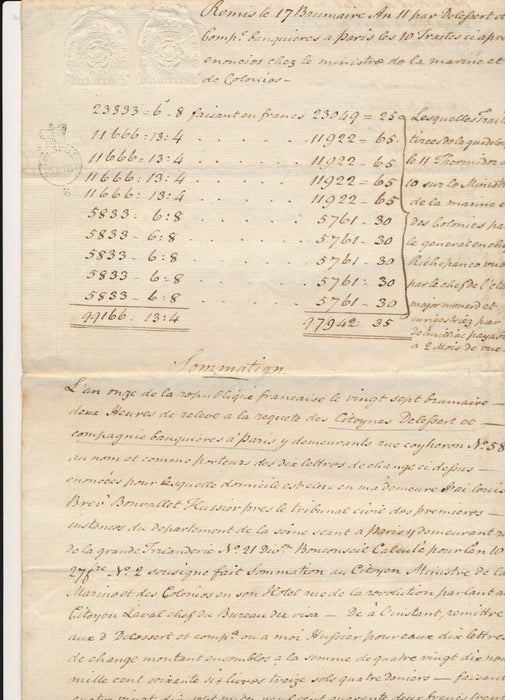 Remis le 17 Brumaire An 11 par Delessert et
Comp.e banquieres a Paris les 10 Traites ci apre
enoncées chez le ministre de la marine et
de Colonies –
23333 = 6.s 8 faisant en francs 23049 = 25 Lesquelles Trait
11666 : 13 : 4 . . . . . 11922 = 65 tirées de la guadelou
11666 : 13 : 4 . . . . . 11922 - 65 le 11 Thermidor a
11666 : 13 : 4 . . . . . 11922 = 65 10 sur le Ministr
11666 : 13 : 4 . . . . . 11922 - 65 de la marine e
5833 - 6 : 8 . . . . . 5761 - 30 des Colonies pa
5833 - 6 : 8 . . . . . 5761 - 30 le general en che
5833 - 6 : 8 . . . . . 5761 - 30 Richepance vue
5833 - 6 : 8 . . . . . 5761 : 30 par le chef de l'eta
5833 - 6 : 8 . . . . . 5761 - 30 major menard et
99166 - 13 : 4 97942 : 35 enregistrées par
payab
a 2 Mois de vue
Sommation
L'an onze de la republique francaise le vingt sept brumaire —
deux Heures de relevé a la requete des Citoyens Delessert et —
compagnie banquieres à Paris y demeurants rue coqheron N.o 58
au nom et comme porteurs des dix lettres de change ci dessus —
enoncées pour lesquelle domicile est elu en ma demeure J'ai louis
Brev.t Bonvallet Hussier pres le tribunal civil des premieres —
instances du departement de la seine seant a Paris y demeurant r
de la grande Frianderie N.o 21 Div.on Bonconseil Calculé pour lan 10
27 fre N.o 2 sousigné fait Sommation au Citoyen Ministre de la
Marine et des Colonies en son Hôtel rue de la revolution parlant a
Citoyen Laval chef du Bureau du visa — De à l'instant, remittre
aux d. Delessert et comp.e ou a moi Hussier pour eux dix lettres
de change montant ensembles a la somme de quatre vingt dix neu
mille cent soixante six livres treize sols quatre deniers — faisant
quatre vingt dix sept mille neuf cent quarante deux francs trent